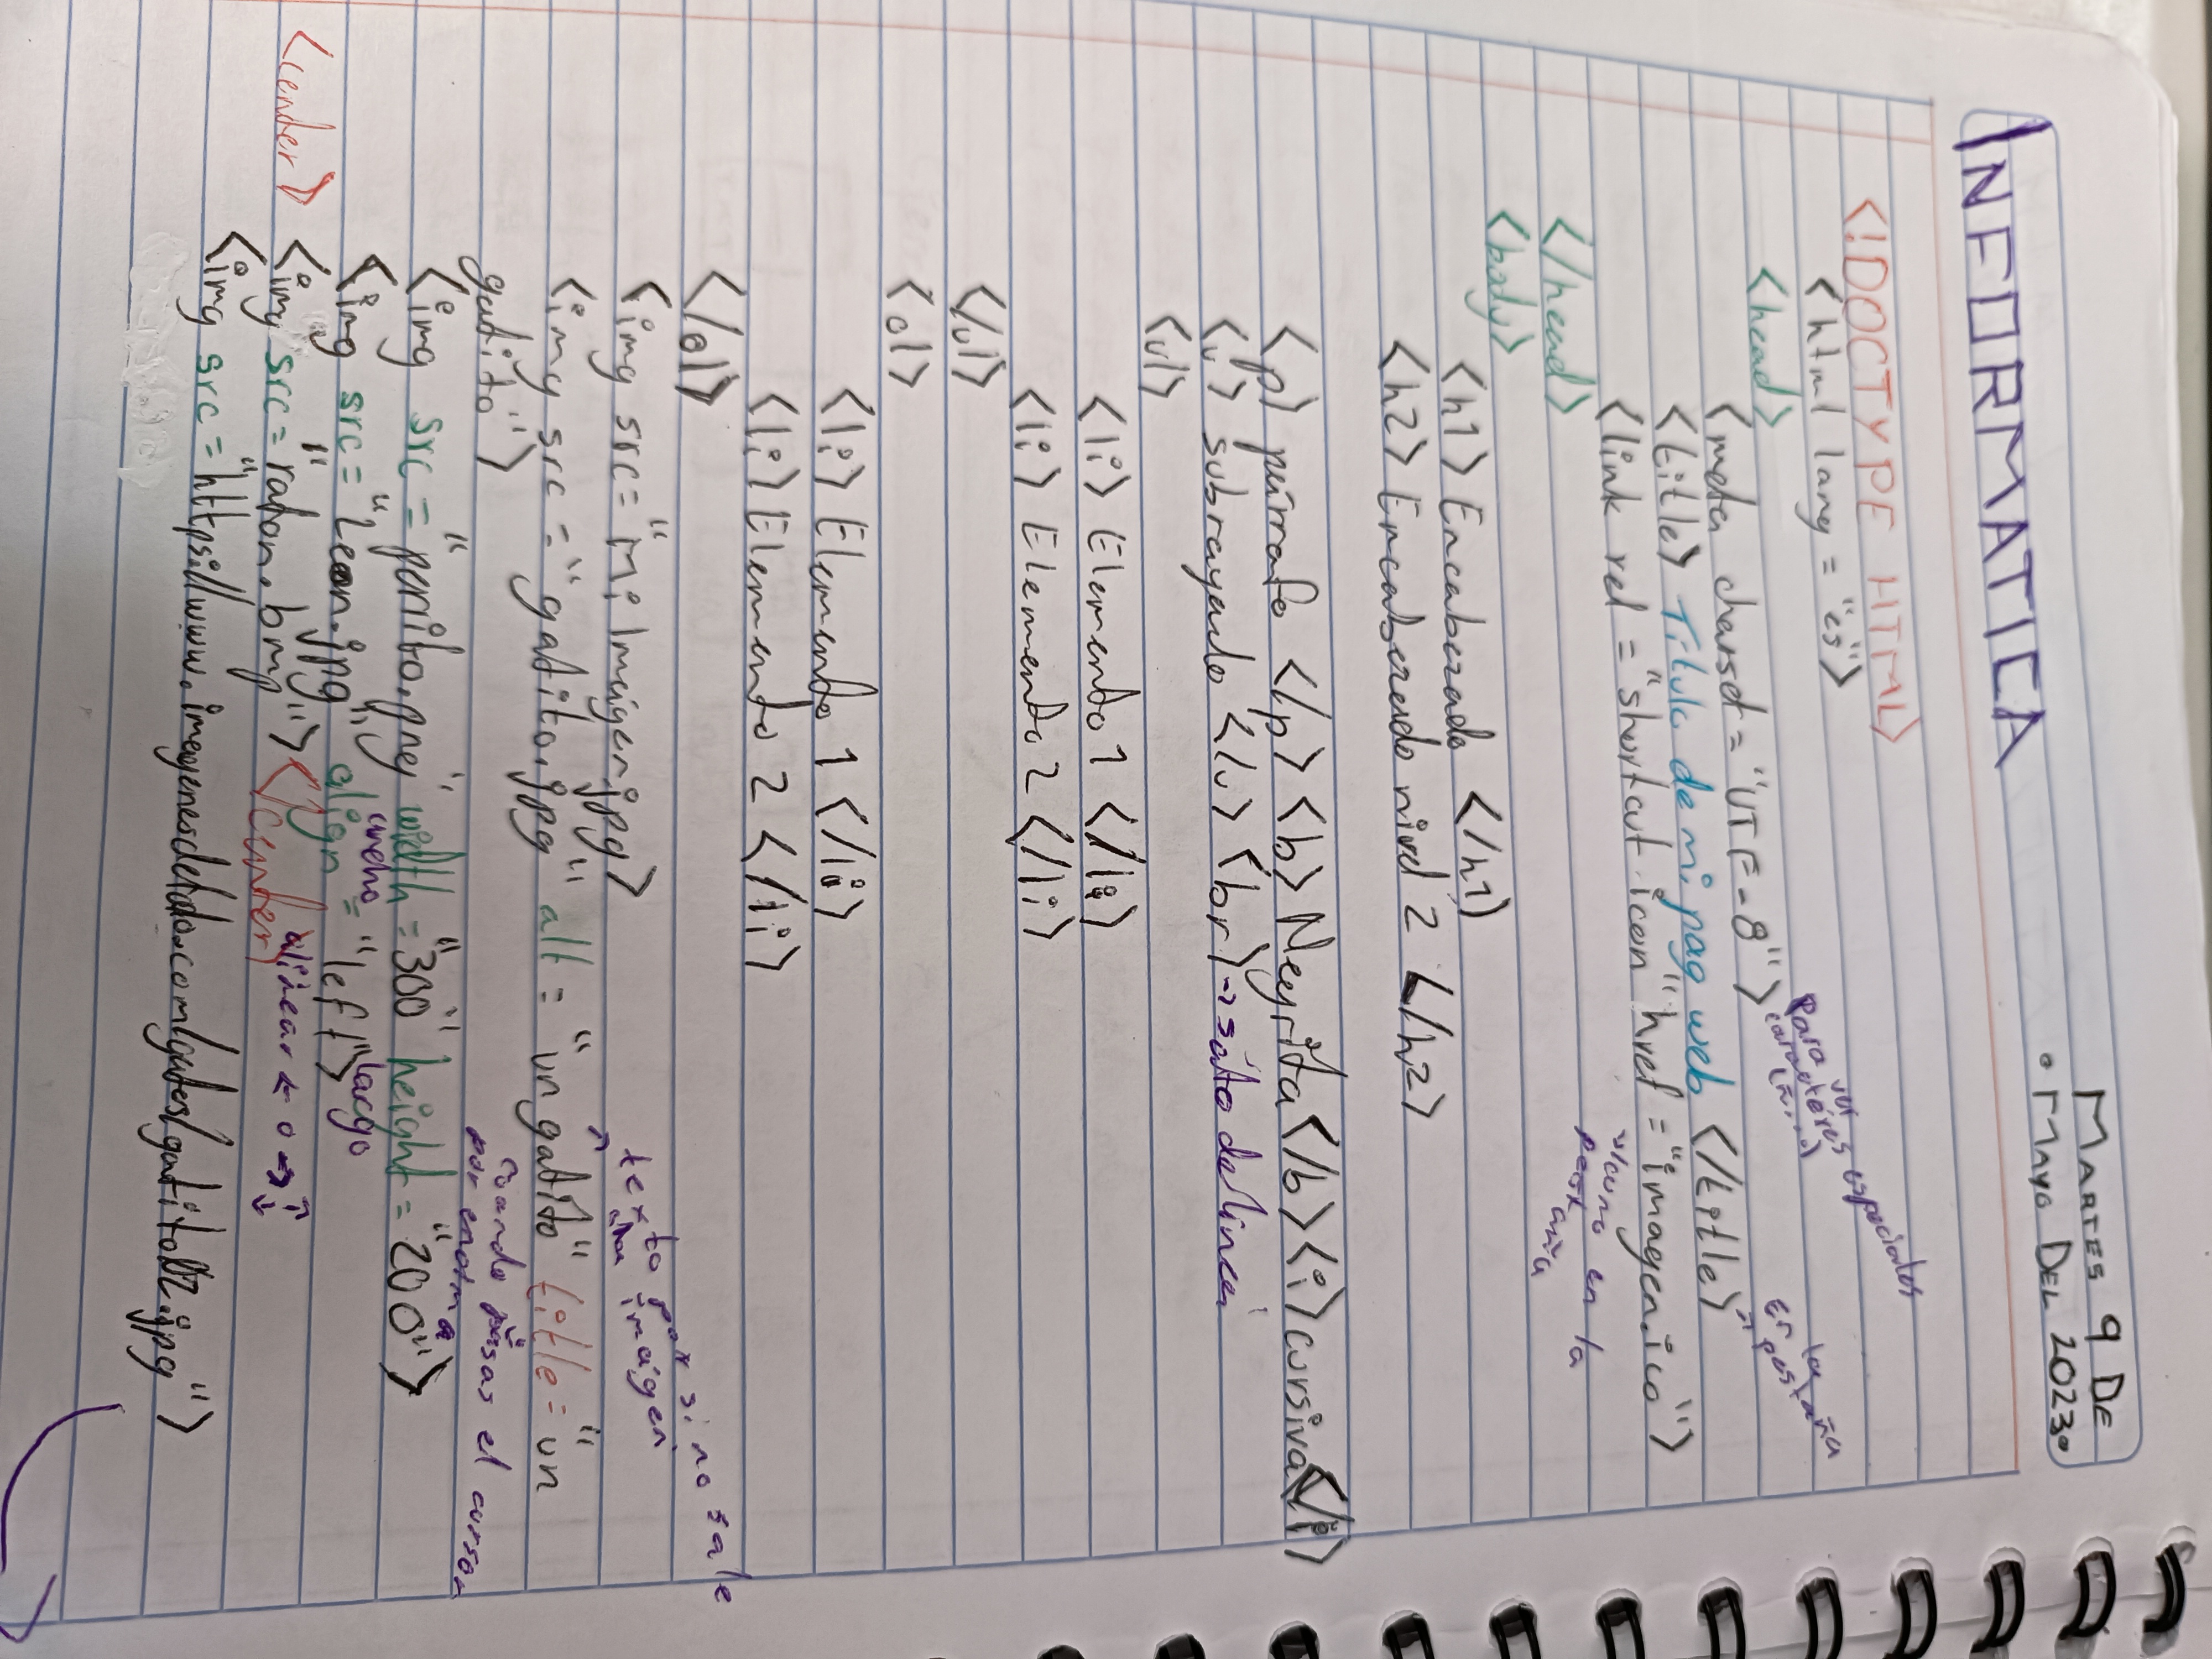 MARTES 9 DE
• MAYO DEL 2023•
INFORMATICA
<!DOCTYPE HTML>
<html lang = "es">
<head>
<meta charset = "UTF-8"> Para ver caractéres especiales (ñ...)
<title> Titulo de mi pag web </title> En la pestaña
<link rel = "shortcut icon" href = "imagen.ico">
icono en la pestaña
</head>
<body>
<h1> Encabezado </h1>
<h2> Encabezado nivel 2 </h2>
<p> párrafo </p> <b> Negrita </b> <i> cursiva </i>
<u> subrayado </u> <br> → salto de linea
<ul>
<li> Elemento 1 </li>
<li> Elemento 2 </li>
</ul>
<ol>
<li> Elemento 1 </li>
<li> Elemento 2 </li>
</ol>
texto por si no sale
<img src= "Mi Imágen.jpg> una imágen
<img src = "gatito.jpg" alt = "un gatito" title = "un
gatito"> cuando pasas el cursor
por encima
<img src = "perrito.png" width = "300" height = "200">
ancho largo
<img src = "Leon.jpg" align = "left">
<center> <img src= "raton.bmp"> <center> alinear ← o → ↑ ↓
<img src = "https://www.imagenesdeldia.com/gatos/gatito02.jpg">